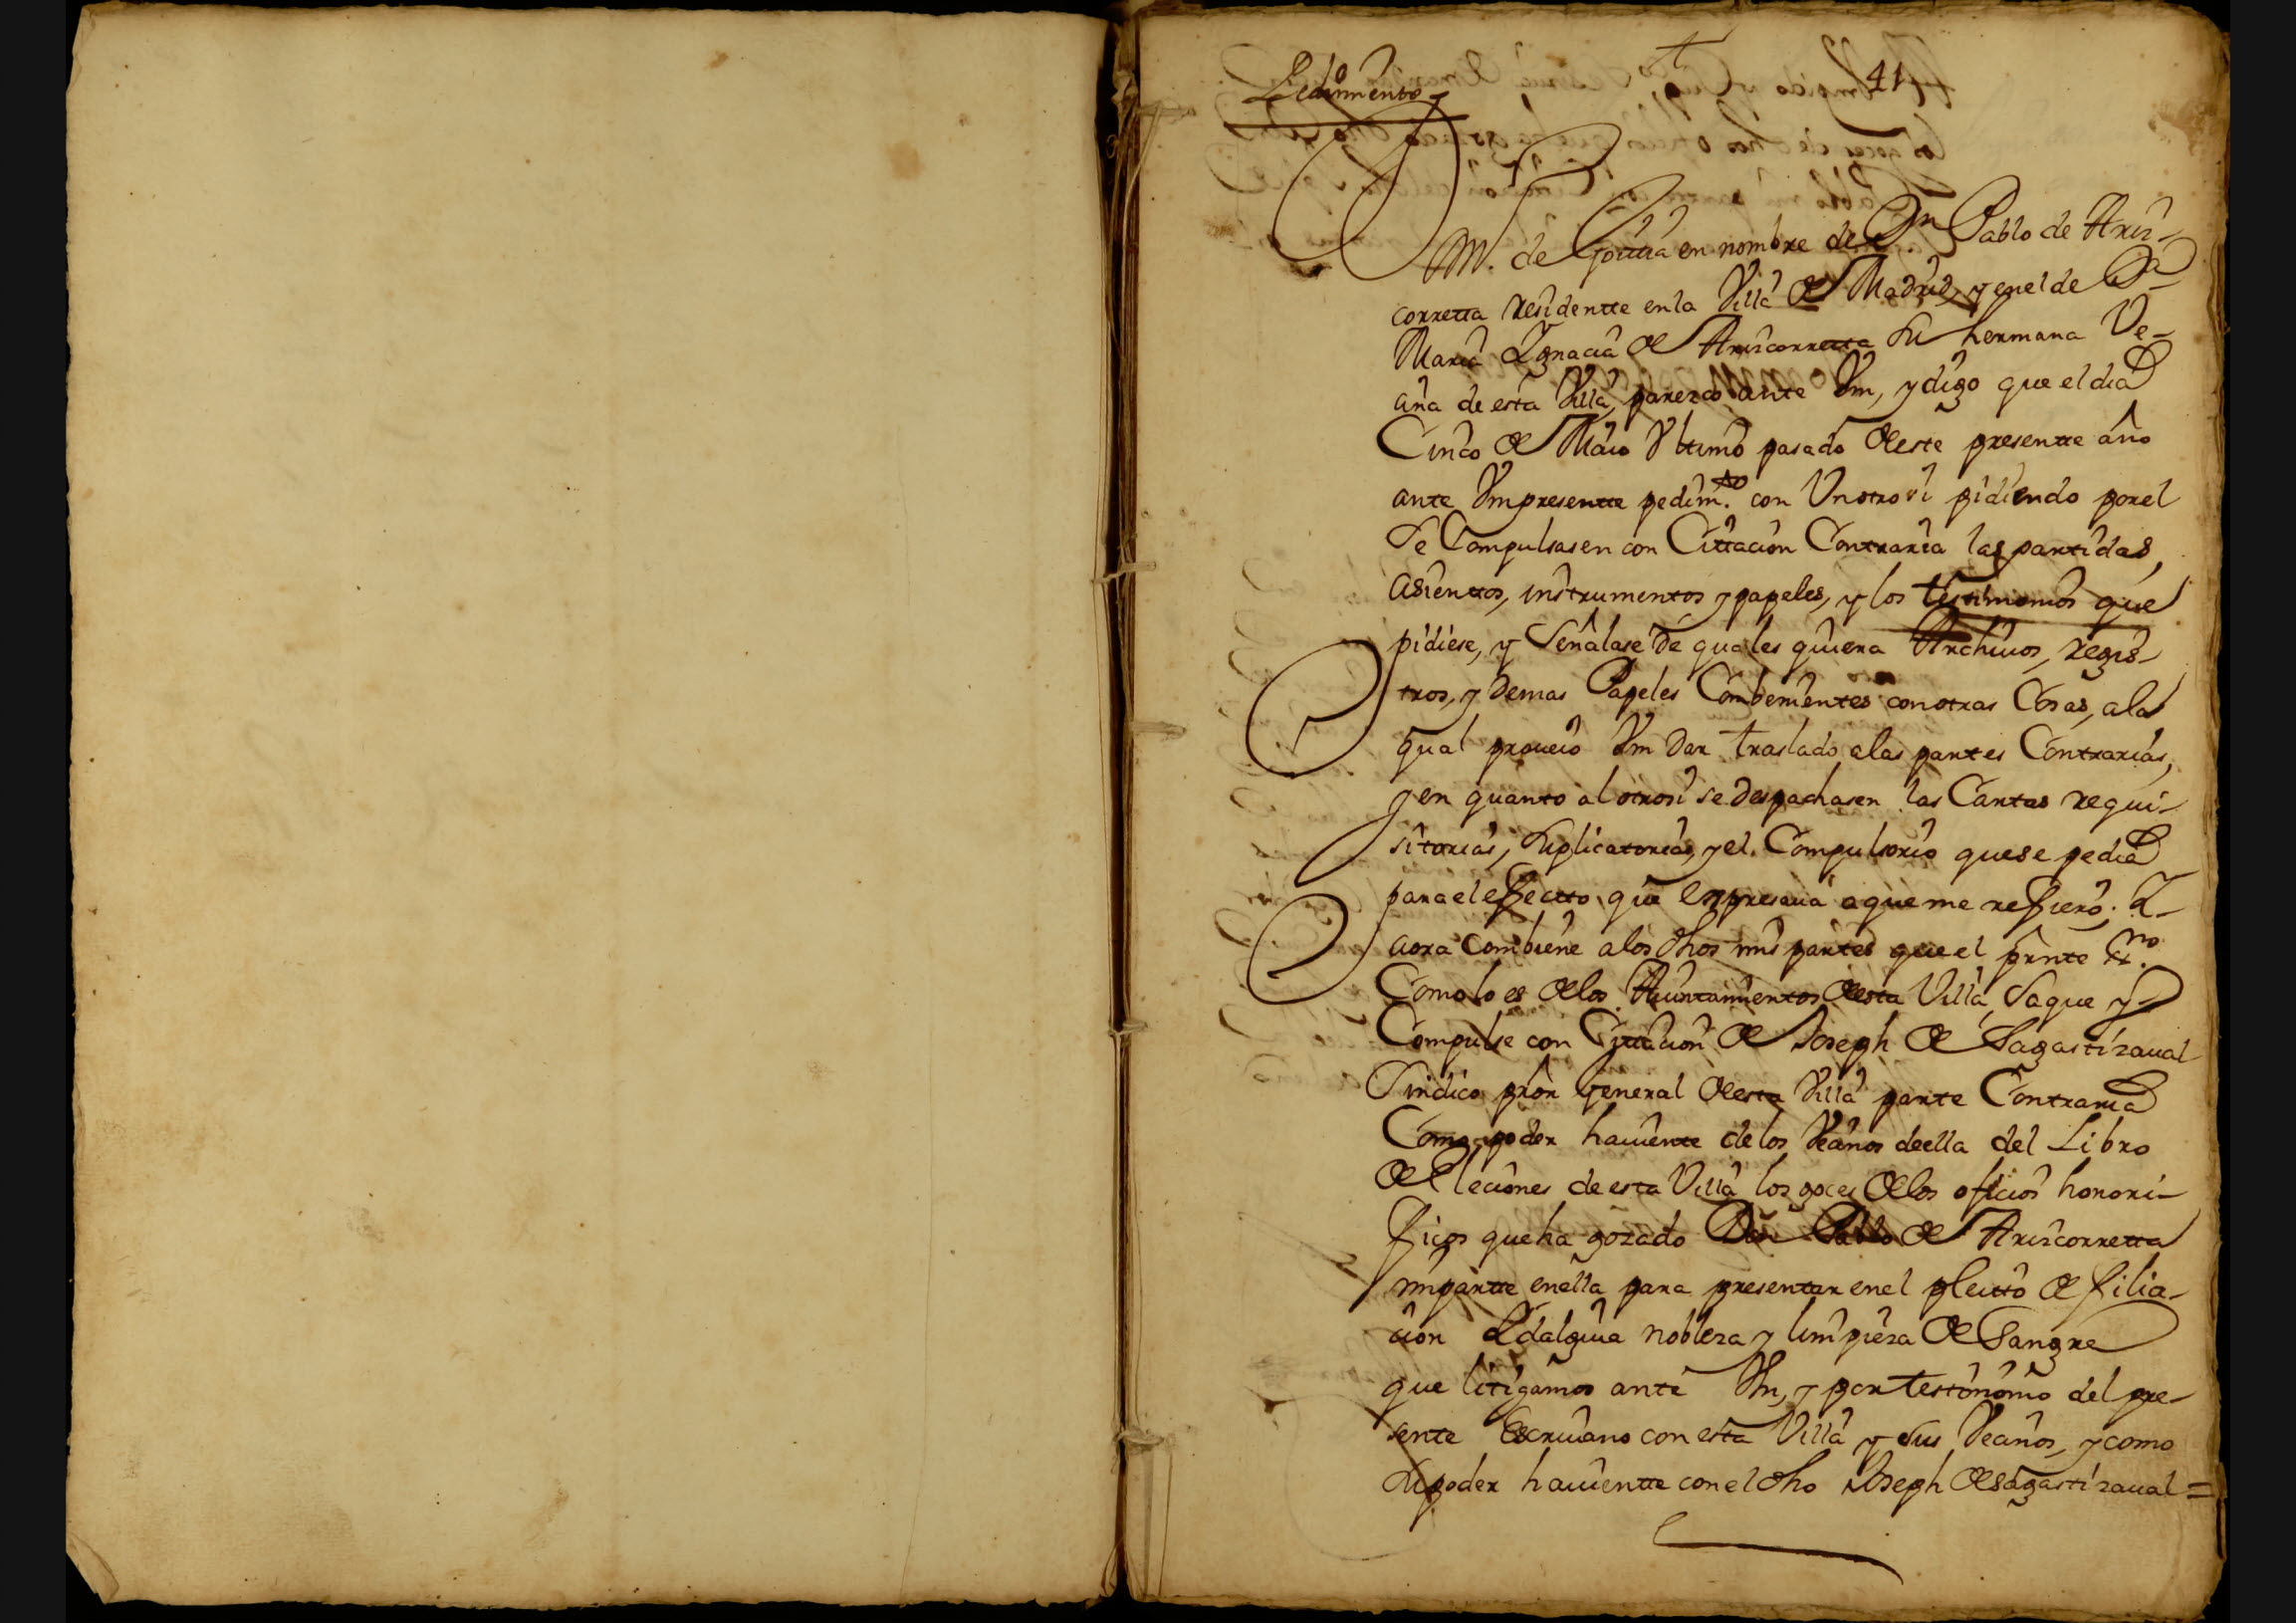 Pedimento
41
M. de Goitia en nombre de Dn Pablo de Aris-
corretta residentte en la Villa de Madrid, y en el de Da
Maria Ignacia de Ariscorretta su hermana Ve-
cina de esta Villa, parezco ante Vm, y digo que el dia
Cinco de Maio Vltimo pasado de este presentte año
ante Vm presentte pedimto con Vn otro si pidiendo por el
Se Compulsasen con Cittacion Contraria las partidas,
asientos, instrumentos y papeles, y los testimonios que
pidiese, y Señalase de quales quiera Archiuos, regis-
tros, y demas Papeles Combenientes con otras Cosas, a la
qual proueio Vm dar traslado a las partes Contrarias,
y en quanto al otrosi se despachasen las Cartas requi-
sitorias, suplicatorias, y el Compulsorio que se pedia
para el efectto que Expresaua a que me refiero. I
aora Combiene a los dhos mis partes que el prnte essno
Como lo es de los Aiuntamientos de esta Villa, Saque y
Compulse con Cittacion de Joseph de Sagastizaual
Sindico pror General de esta Villa parte Contraria
Como poder hauiente de los Vecinos de ella del Libro
de Eleciones de esta Villa los goces de los oficios honori-
ficos que ha gozado Don Pablo de Ariscorretta
mi partte en ella para presentar en el pleitto de filia-
cion Idalguia nobleza y limpieza de Sangre
que litigamos ante Vm, y por testimonio del pre-
sente Escriuano con esta Villa y sus Vecinos, y como
su poder hauientte con el dho Joseph de Sagastizaual =